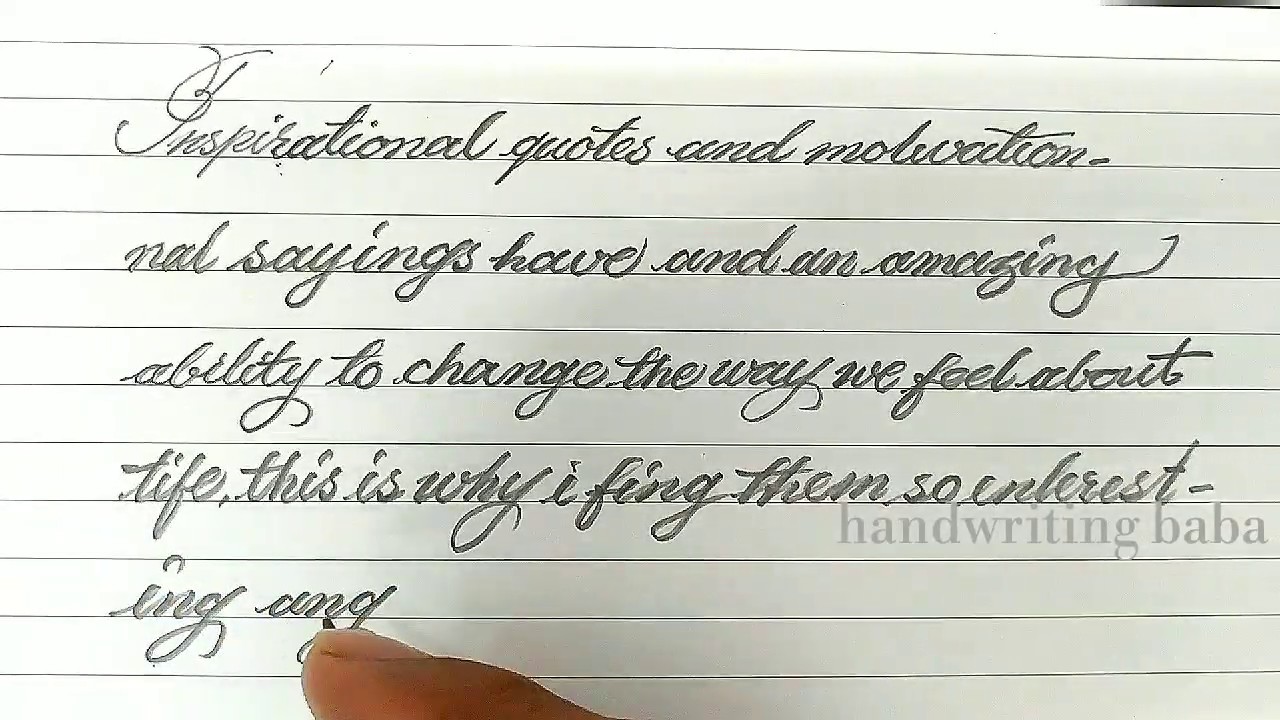 Inspirational quotes and motivation-
nal sayings have and an amazing
ability to change the way we feel about
life, this is why i fing them so interest-
handwriting baba
ing ang